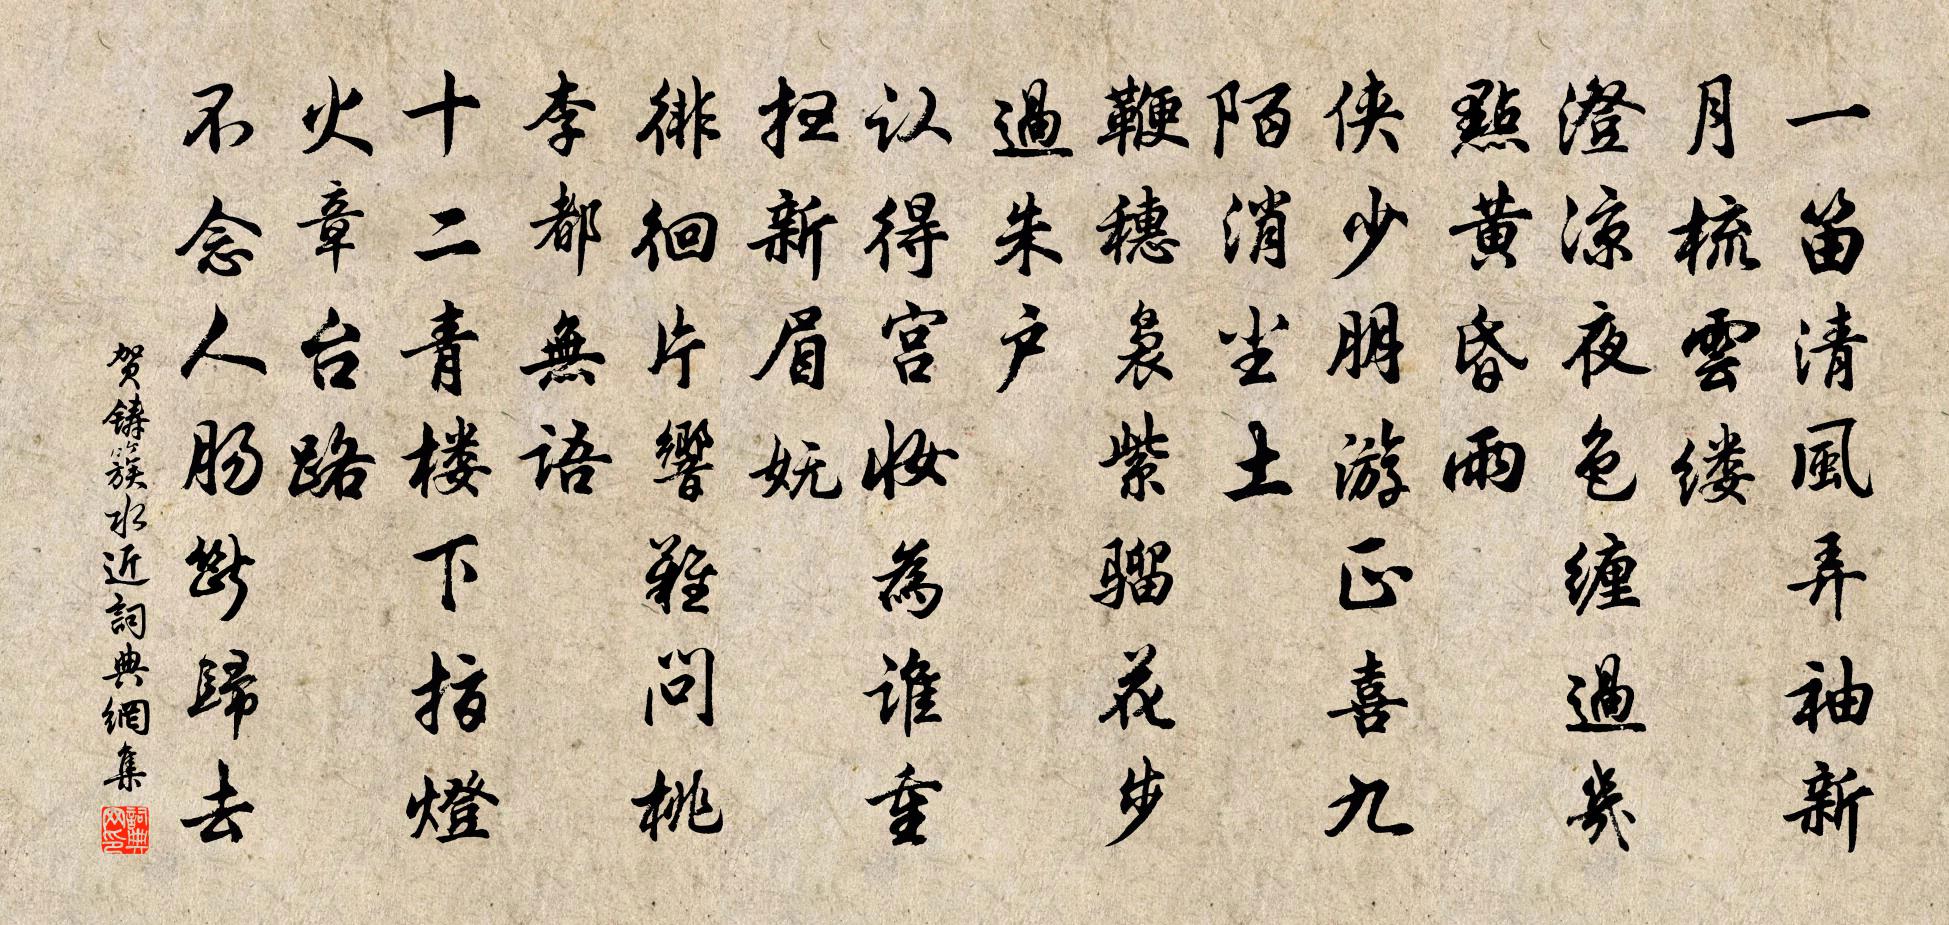 一笛清風弄袖新
月梳雲缕
澄涼夜色缠過幾
點黄昏雨
侠少朋游正喜九
陌消尘土
鞭穗袅紫骝花步
過朱户
认得宫妆為谁重
扫新眉妩
徘徊片響難问桃
李都無语
十二青楼下指燈
火章台路
不念人肠斷歸去
贺鑄簇水近詞典網集
詞典网印